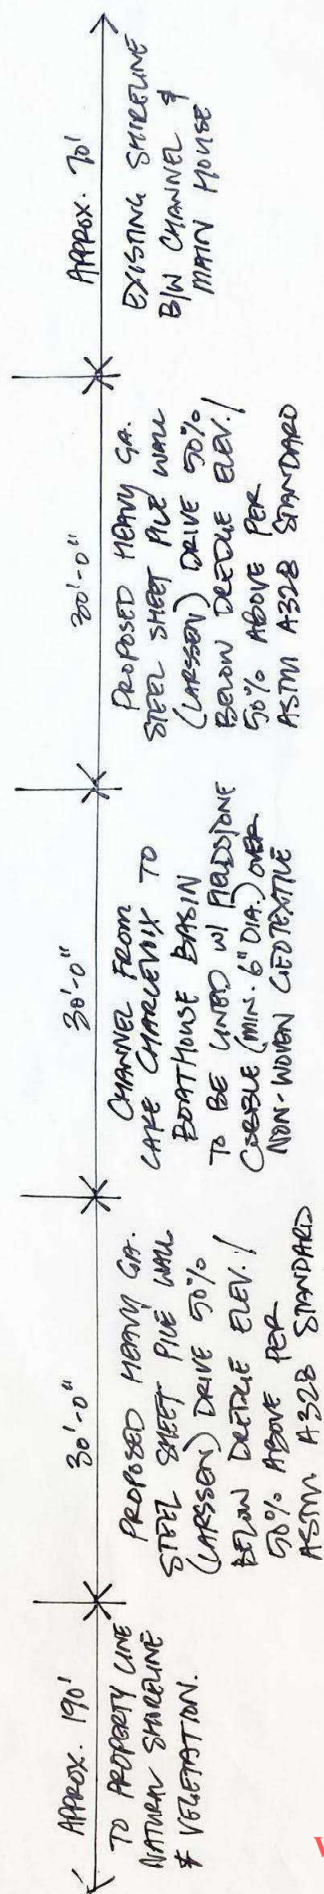 APPROX. 190'
TO PROPERTY LINE
NATURAL SHORELINE
& VEGETATION.
30'-0"
PROPOSED HEAVY GA.
STEEL SHEET PILE WALL
(LARSSEN) DRIVE 50%
BELOW DREDGE ELEV./
50% ABOVE PER
ASTM A328 STANDARD
30'-0"
CHANNEL FROM
LAKE CHARLEVOIX TO
BOATHOUSE BASIN
TO BE LINED W/ FIELDSTONE
COBBLE (MIN. 6" DIA.) OVER
NON-WOVEN GEOTEXTILE
30'-0"
PROPOSED HEAVY GA.
STEEL SHEET PILE WALL
(LARSSEN) DRIVE 50%
BELOW DREDGE ELEV./
50% ABOVE PER
ASTM A328 STANDARD
APPROX. 70'
EXISTING SHORELINE
B/W CHANNEL &
MAIN HOUSE